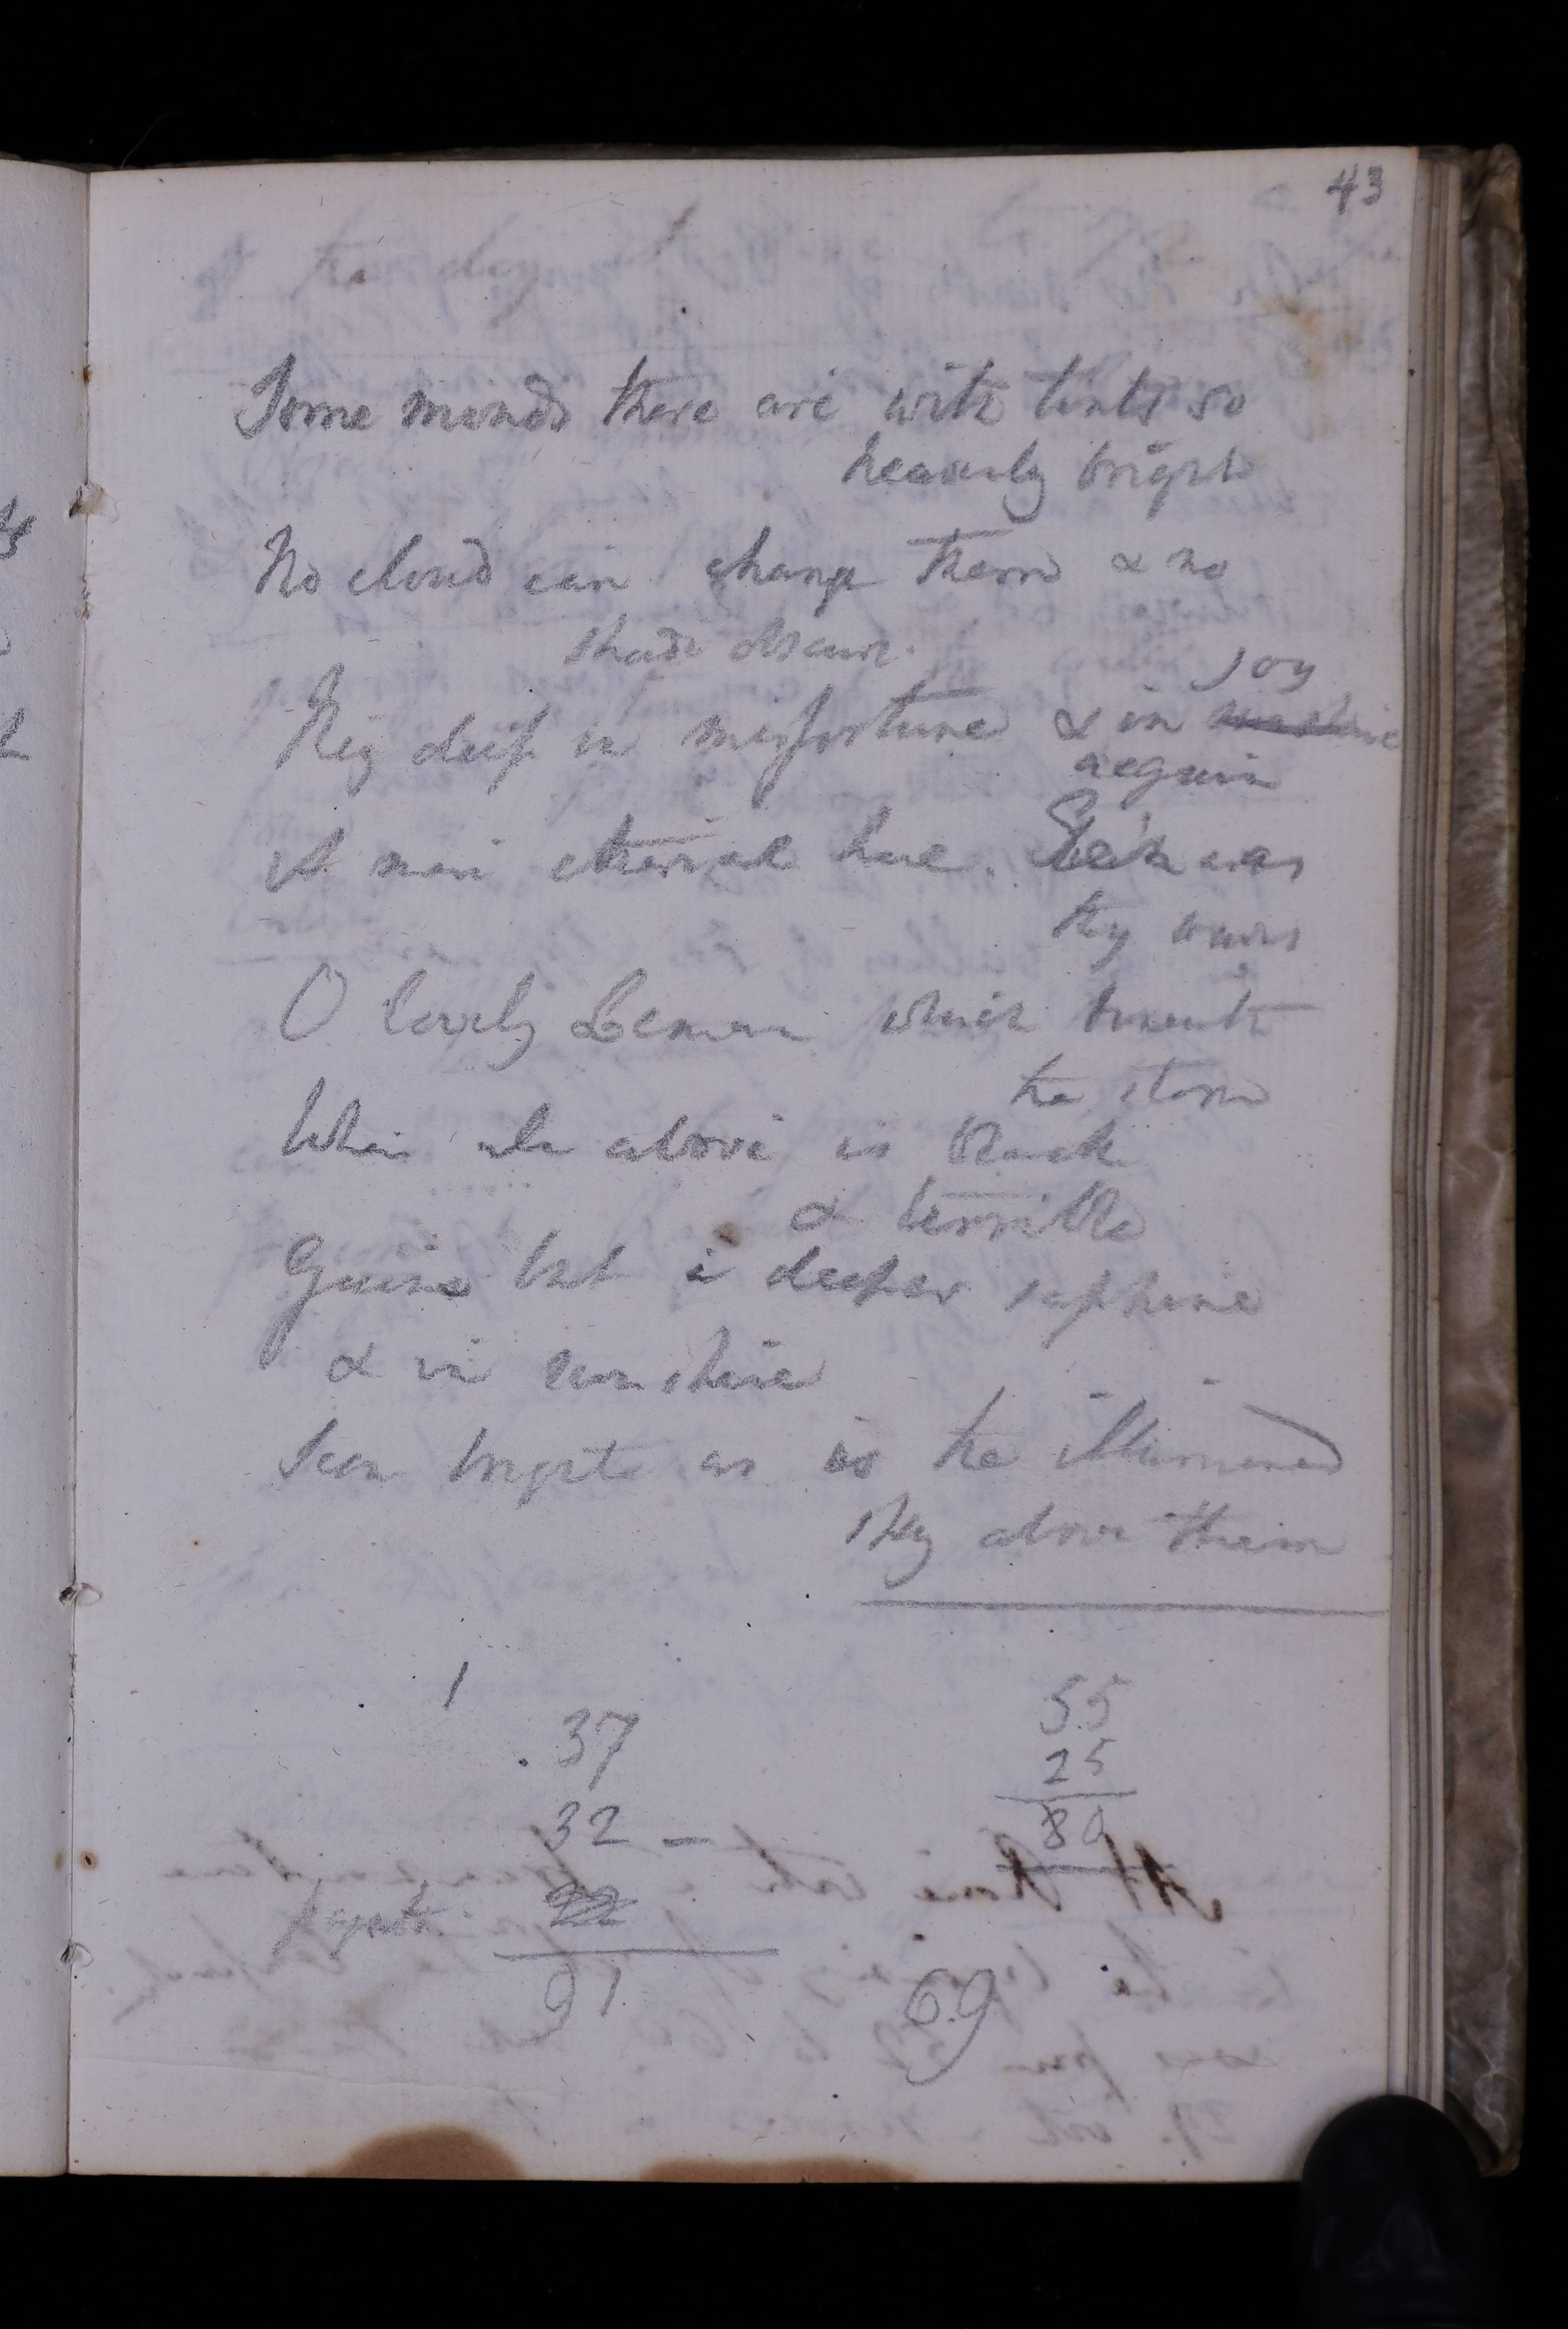 43
the day
Some minds there are with tints so
heavenly bright
No cloud can change them & no
shade obscure.
They deep in misfortune & in sunshine joy
acquire
A more etherial hue. Such was
thy waves
O lovely Leman which beneath
the storm
When all above is black
& terrible
Gains but a deeper saphire
& in sunshine
Seem bright as is the illumined
sky above them
1
37
32 –
22
91
55
25
80
69